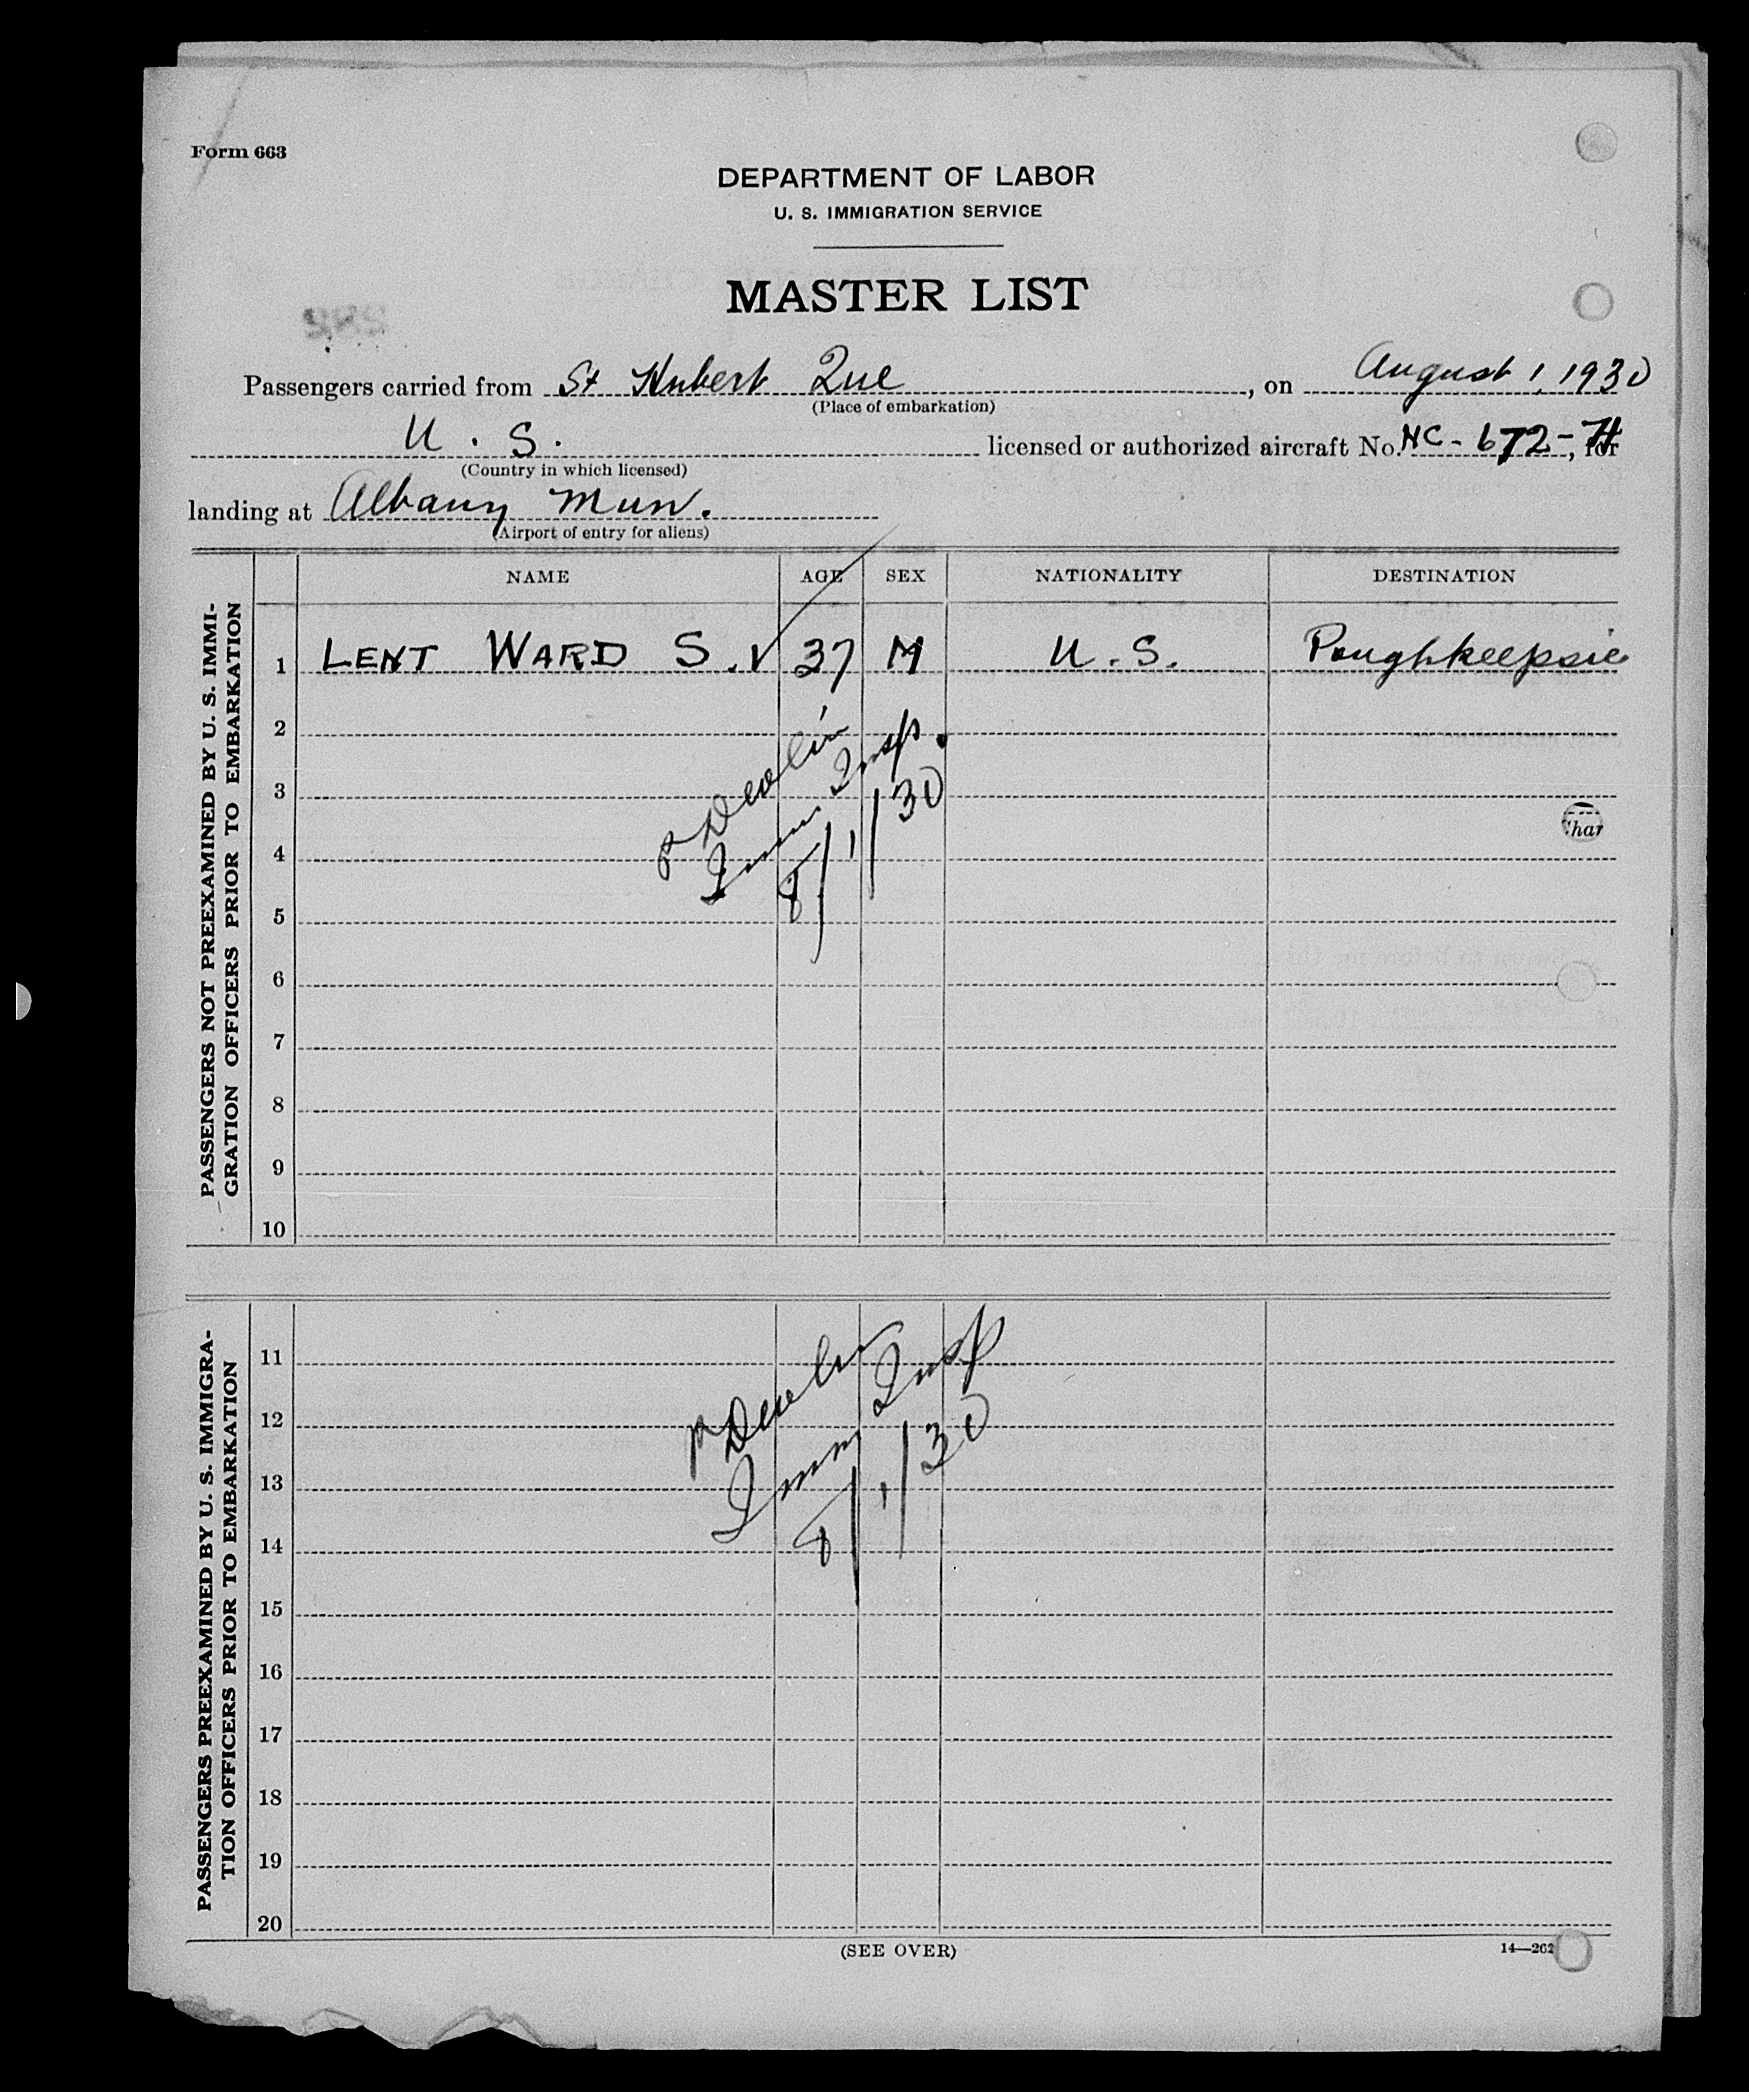 Form 663
DEPARTMENT OF LABOR
U. S. IMMIGRATION SERVICE
MASTER LIST
Passengers carried from St Hubert Que, on August 1, 1930
(Place of embarkation)
U. S. licensed or authorized aircraft No. NC-672-H, for
(Country in which licensed)
landing at Albany Mun.
(Airport of entry for aliens)
NAME AGE SEX NATIONALITY DESTINATION
PASSENGERS NOT PREEXAMINED BY U. S. IMMI-
GRATION OFFICERS PRIOR TO EMBARKATION
1 LENT WARD S. 37 M U. S. Poughkeepsie
2
3
4
5
6
7
8
9
10
P Devlin
Imm. Insp.
8/1/30
Char
PASSENGERS PREEXAMINED BY U. S. IMMIGRA-
TION OFFICERS PRIOR TO EMBARKATION
11
12
13
14
15
16
17
18
19
20
P Devlin
Imm Insp
8/1/30
(SEE OVER)
14—262